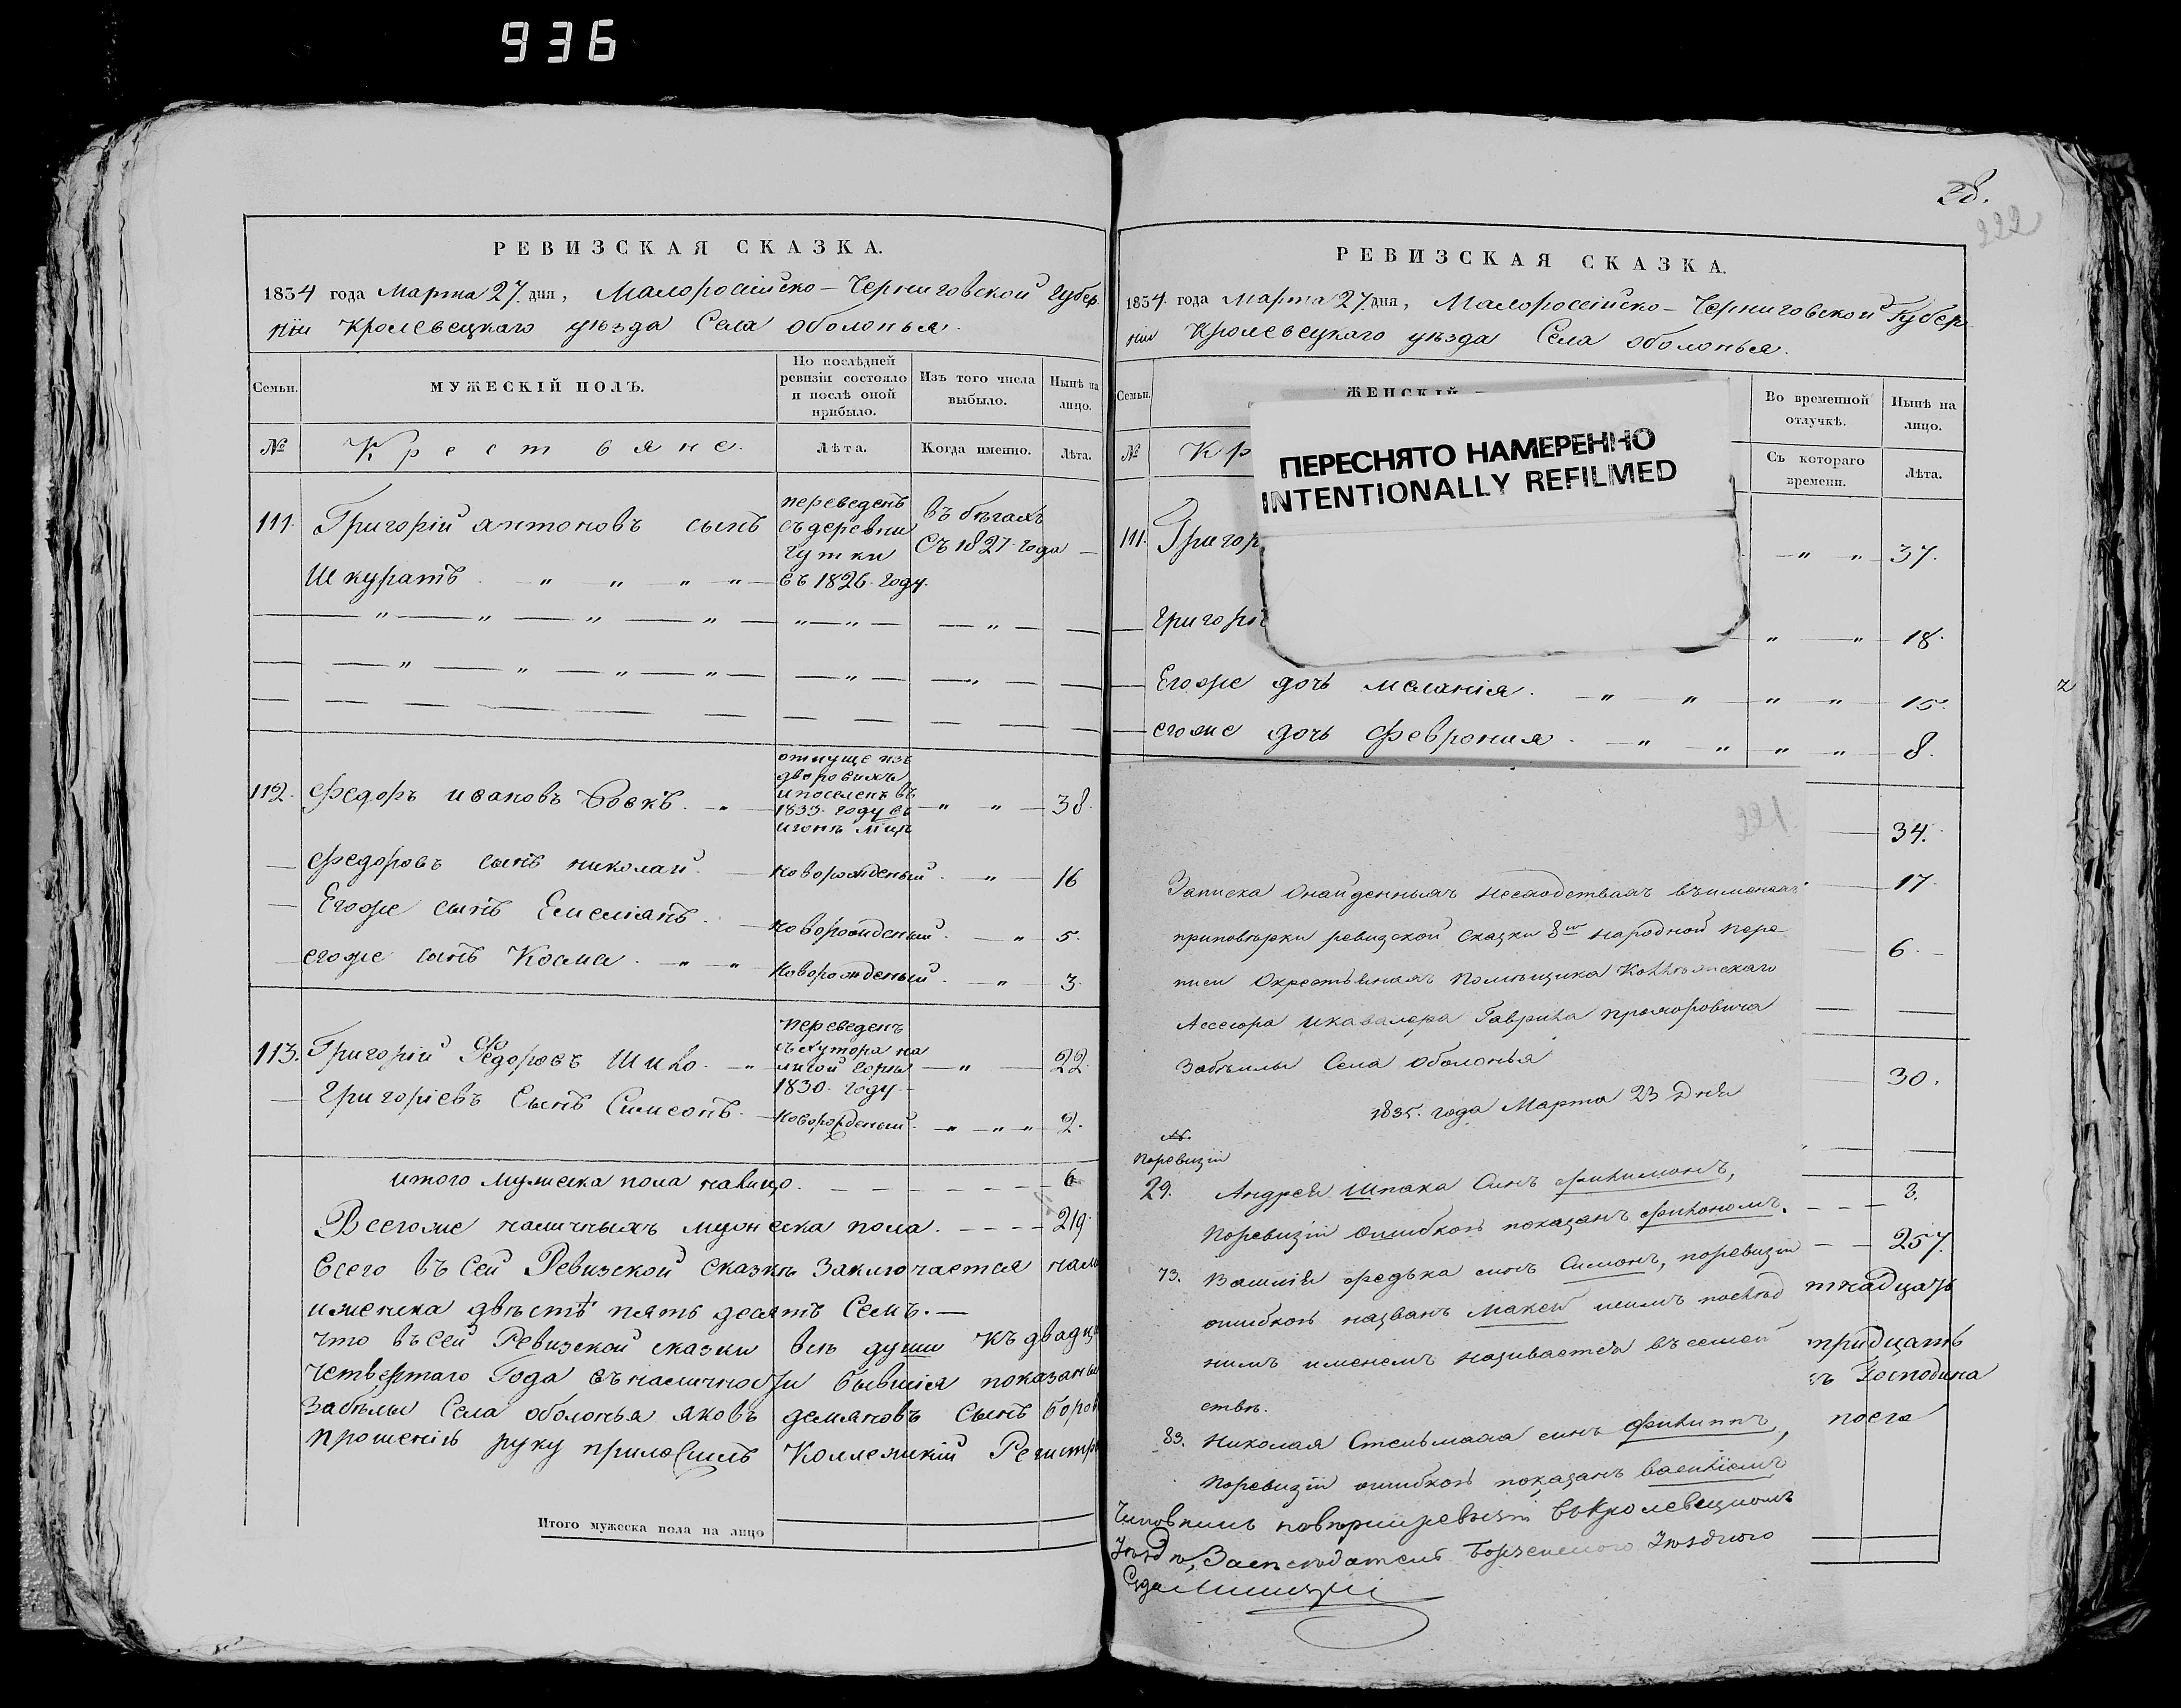 936
РЕВИЗСКАЯ СКАЗКА.
1834 года Марта 27. дня, Малоросійско-Черниговской Губер
ніи Кролевецкаго уѣзда Села оболонья.
Семьи. МУЖЕСКІЙ ПОЛЪ. По послѣдней ревизіи состояло и послѣ оной прибыло. Изъ того числа выбыло. Нынѣ на лицо.
№ Крестьяне. Лѣта. Когда именно. Лѣта.
111. Григорій антоновъ сынъ
Шкуратъ
переведенъ
съ деревни
гутки
въ 1826. году.
въ бѣгахъ
съ 1827. года
112. Федоръ ивановъ 38.
дворовихъ
и поселенъ въ
1833. году въ
Федоровъ сынъ николай. новорожденый. 16
Егоже сынъ Емеліянъ. новорожденый. 5.
егоже сынъ Косма. новорожденый. 3.
113. Григорій Федоровъ Шило. 22
переведенъ
съ хутора на
лисой горы
1830. году
Григоріевъ Сынъ Симеонъ. новорожденый. 2.
итого мужеска пола налицо. 6
Всегоже наличныхъ мужеска пола. 219.
Всего въ сей Ревизской сказкѣ заключается нали
и женска двѣстѣ пять десятъ Семъ.
что въ сей Ревизской сказки всѣ души къ двадца
четвертаго Года въ наличности бывшія показаны
Забѣлы Села оболонья яковъ демяновъ сынъ боров
прошенію руку приложилъ Коллежкій Регистр
Итого мужеска пола на лицо
28.
222
РЕВИЗСКАЯ СКАЗКА.
1834. года Марта 27. дня, Малоросійско-Черниговской Губер
ніи Кролевецкаго уѣзда Села оболонья.
Семьи. ЖЕНСКІЙ Во временной отлучкѣ. Нынѣ на лицо.
№ Кр Съ котораго времени. Лѣта.
ПЕРЕСНЯТО НАМЕРЕННО
INTENTIONALLY REFILMED
111. Григор 37.
Григорі 18.
Егоже дочь меланія. 15.
егоже дочь феврония. 8.
34.
17.
6.
30.
2.
257.
тнадцать
тридцать
въ Господина
посга
Записка О найденныхъ несходствахъ въ именахъ
при повѣрки ревизской сказки 8й народной пере-
писи О крестьянахъ помѣщика Коллежскаго
Асесора и кавалера Гаврила прохоровича
Забѣлы Села оболонья
1835. года Марта 23 Дня
№.
по ревизіи
29. Андрея Шпака Синъ филимонъ,
по ревизіи ошибкою показанъ филономъ.
73. Василія федька синъ Симонъ, по ревизіи
ошибкою названъ максим
нимъ именемъ називается въ семей
ствѣ.
83. Николая Стельмаха синъ филиппъ,
по ревизіи ошибкою показанъ василіемъ
повѣрки ревизіи въ кролевецкомъ
Уѣздѣ, Засѣдатель борзенского Уездного
Суда